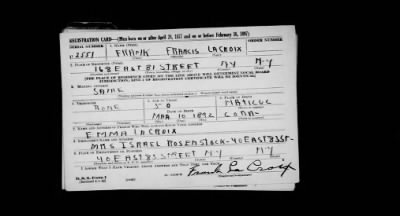 REGISTRATION CARD—(Men born on or after April 28, 1877 and on or before February 16, 1897)
SERIAL NUMBER 1. NAME (Print) ORDER NUMBER
U 2551 FRANK FRANCIS LACROIX
2. PLACE OF RESIDENCE (Print)
168 EAST 81 STREET NY NY
[THE PLACE OF RESIDENCE GIVEN ON THE LINE ABOVE WILL DETERMINE LOCAL BOARD
JURISDICTION; LINE 2 OF REGISTRATION CERTIFICATE WILL BE IDENTICAL]
3. MAILING ADDRESS
SAME
4. TELEPHONE 5. AGE IN YEARS 6. PLACE OF BIRTH
NONE 50
DATE OF BIRTH
MAR 10 1892 CONN
7. NAME AND ADDRESS OF PERSON WHO WILL ALWAYS KNOW YOUR ADDRESS
EMMA LACROIX
8. EMPLOYER'S NAME AND ADDRESS
MRS ISRAEL ROSENSTOCK-40 EAST 83 ST-
9. PLACE OF EMPLOYMENT OR BUSINESS
40 EAST 83 STREET NY NY
I AFFIRM THAT I HAVE VERIFIED ABOVE ANSWERS AND THAT THEY ARE TRUE.
D. S. S. Form 1
Frank La Croix